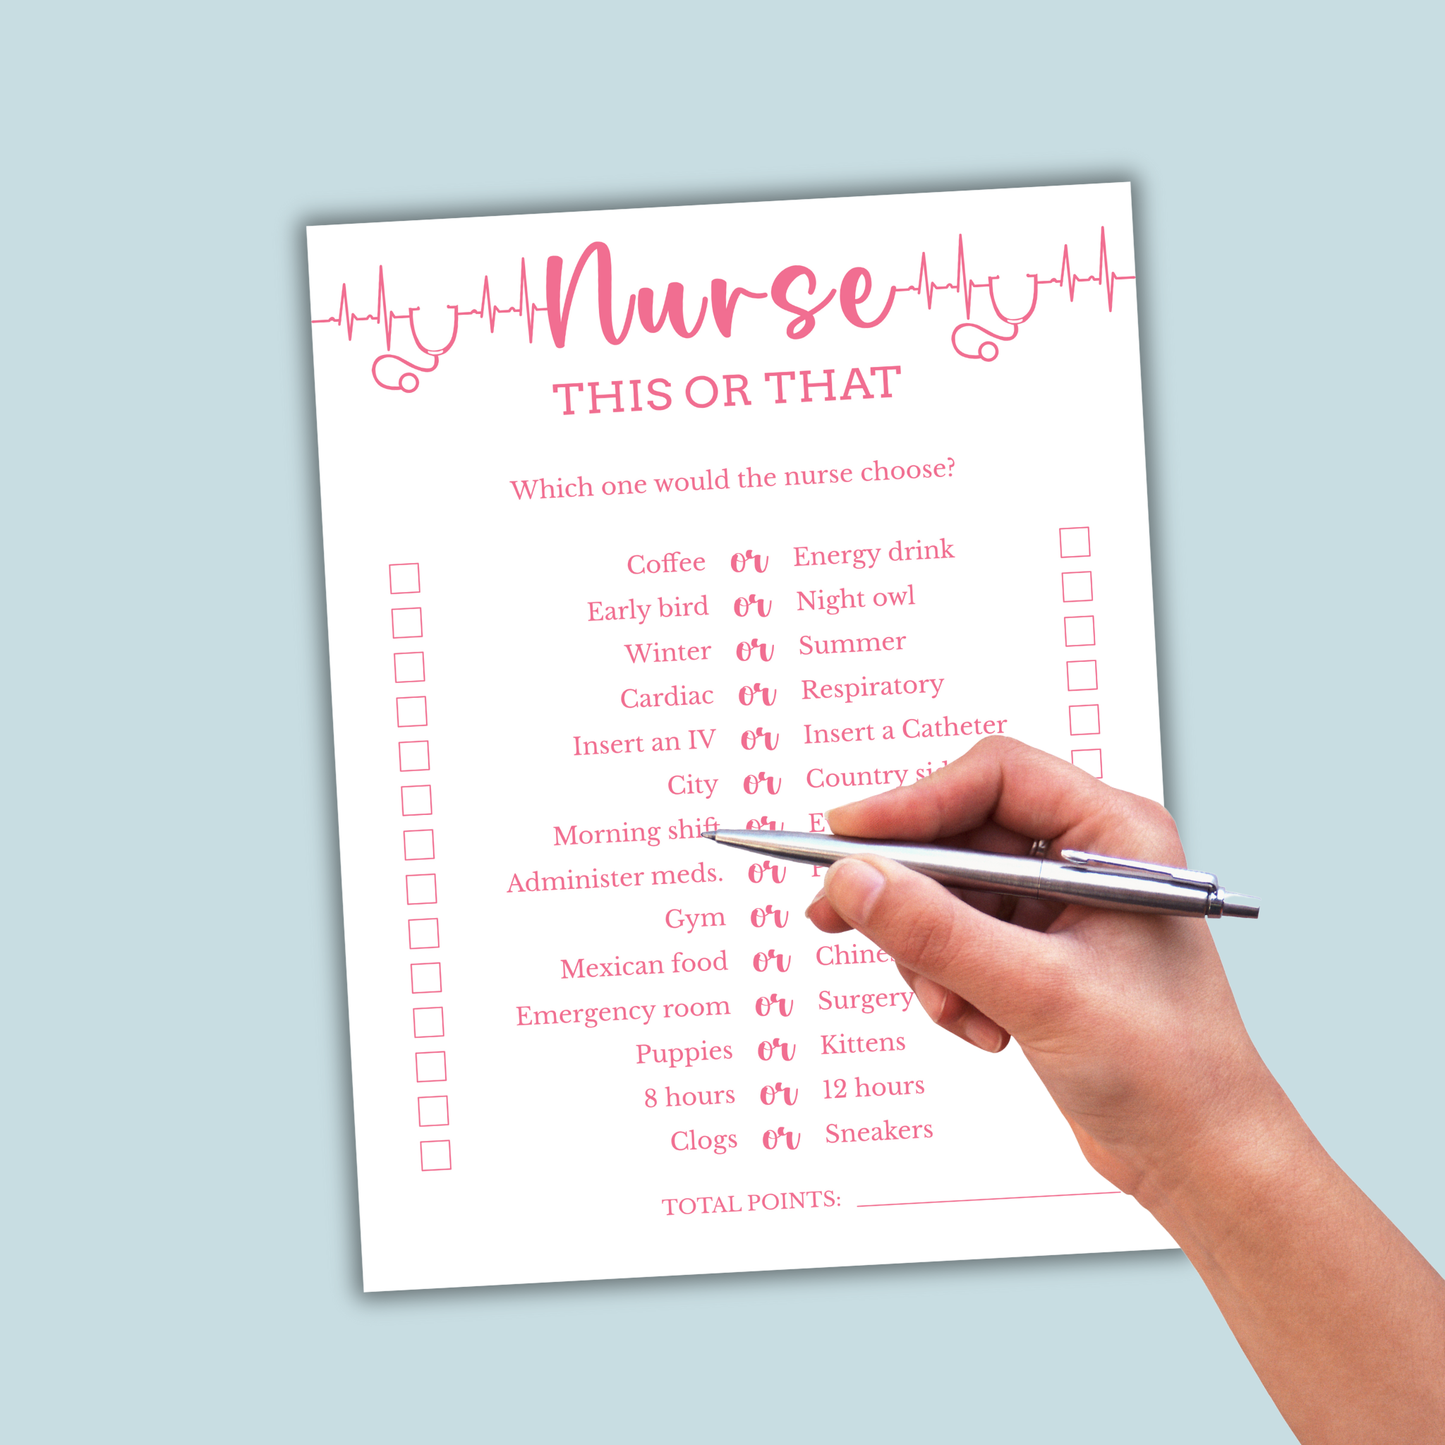 Nurse
THIS OR THAT
Which one would the nurse choose?
Coffee or Energy drink
Early bird or Night owl
Winter or Summer
Cardiac or Respiratory
Insert an IV or Insert a Catheter
City or Country
Morning shift or
Administer meds. or
Gym or
Mexican food or
Emergency room or Surgery
Puppies or Kittens
8 hours or 12 hours
Clogs or Sneakers
TOTAL POINTS: